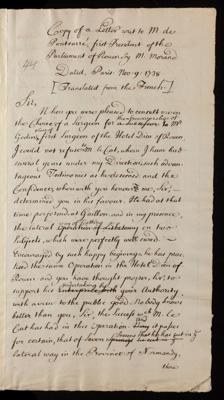 Copy of a Letter writ to M. de
Pontcarré, first President of the
Parliament of Rouen, by M. Morand
Dated, Paris Nov. 9. 1738
[Translated from the French]
Sir,
When you were pleased to consult me on
the Choice of a Surgeon for
first Surgeon of the Hotel Dieu of Rouen,
I could not refuse M. le Cat, whom I have had
several years under my Direction, such advan-
tageous Testimonies as he deserved and the
Confidence, wherewith you honour'd me, Sir,
determined you in his favour. He had at that
time perform'd at Gaillon, and in my presence,
the lateral Operation of Lithotomy on two
Subjects, which were perfectly well cured.
Encouraged by such happy beginnings, he has prac-
tised the same Operation in the Hotel Dieu of
Rouen, and you have thought proper, Sir, to
support his Enterprize with your Authority,
with a view to the public good. Nobody knows
better than you, Sir, the Success M. le
Cat has had in this Operation
for certain, that of Seven
lateral way in the Province of Normandy,